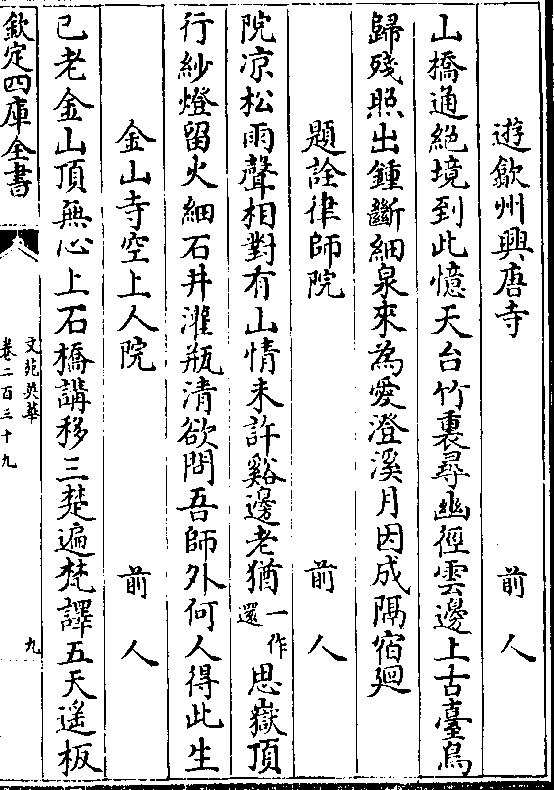 遊歙州興唐寺　前人
山橋通絶境到此憶天台竹裏尋幽徑雲邊上古臺鳥
歸殘照出鍾斷細泉來為愛澄溪月因成隔宿廻
題詮律師院　前人
院凉松雨聲相對有山情未許谿邊老猶一作還思嶽頂
行紗燈留火細石井灌瓶清欲問吾師外何人得此生
金山寺空上人院　前人
已老金山頂無心上石橋講移三楚遍梵譯五天遥板
欽定四庫全書
文苑英華
卷二百三十九
九